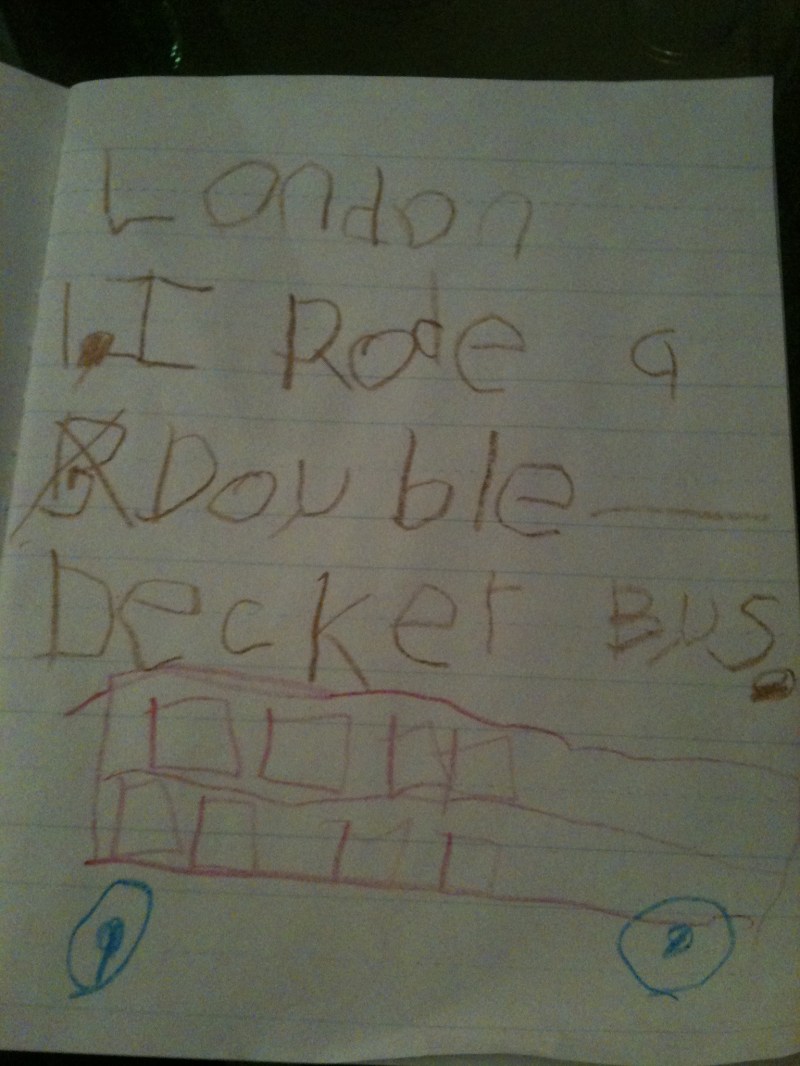 London
1. I Rode a
Double —
Decker Bus.